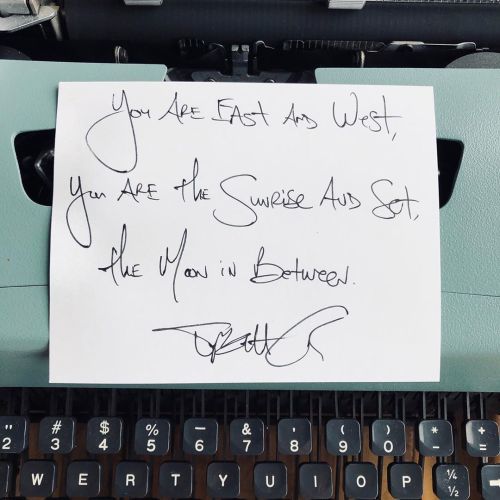 You Are East And West,
You Are the Sunrise And Set,
the Moon in Between.
" # $ % - & ' ( ) * +
2 3 4 5 6 7 8 9 0 - =
W E R T Y U I O P ¼ ½